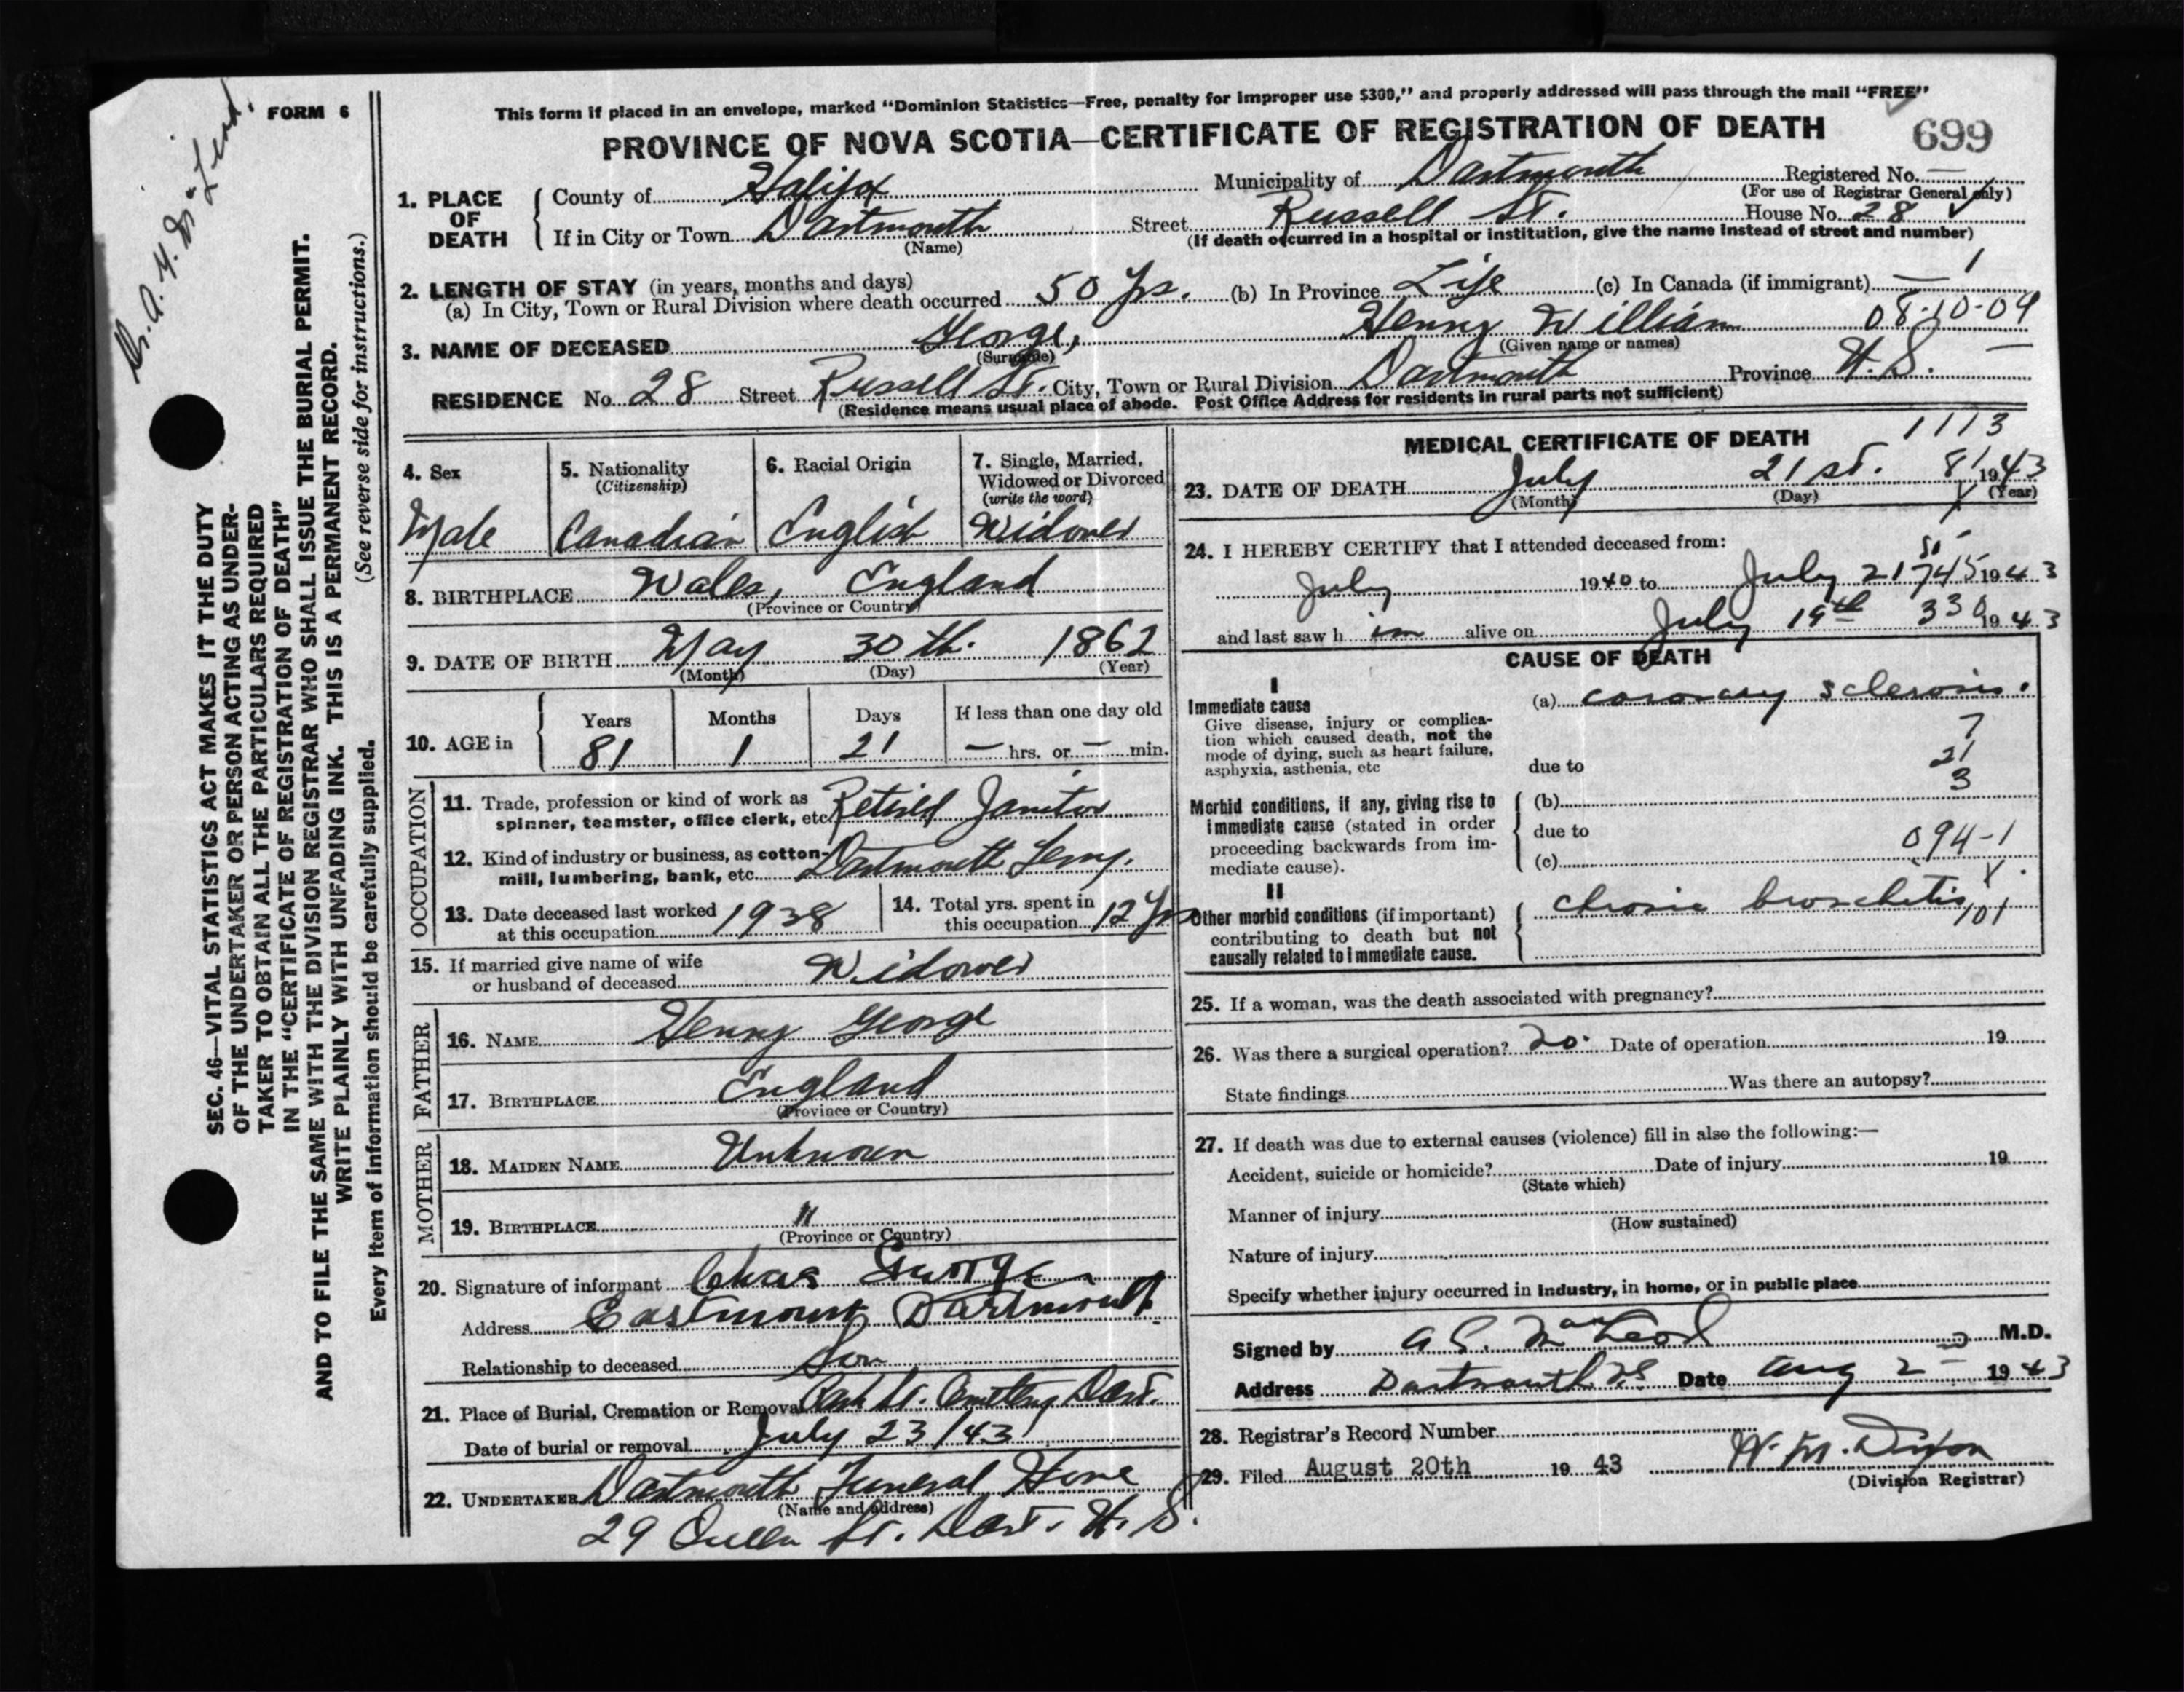 Dr. A. G.
FORM 6
This form if placed in an envelope, marked "Dominion Statistics—Free, penalty for improper use $300," and properly addressed will pass through the mail "FREE"
PROVINCE OF NOVA SCOTIA—CERTIFICATE OF REGISTRATION OF DEATH 699
1. PLACE OF DEATH County of Halifax Municipality of Dartmouth Registered No. —
(For use of Registrar General only)
If in City or Town Dartmouth Street Russell St. House No. 28
(Name) (If death occurred in a hospital or institution, give the name instead of street and number)
2. LENGTH OF STAY (in years, months and days) 1
(a) In City, Town or Rural Division where death occurred 50 Yrs. (b) In Province Life (c) In Canada (if immigrant) —
08-10-09
3. NAME OF DECEASED George, Henry William
(Surname) (Given name or names)
RESIDENCE No. 28 Street Russell St. City, Town or Rural Division Dartmouth Province N.S. —
(Residence means usual place of abode. Post Office Address for residents in rural parts not sufficient)
SEC. 46—VITAL STATISTICS ACT MAKES IT THE DUTY
OF THE UNDERTAKER OR PERSON ACTING AS UNDER-
TAKER TO OBTAIN ALL THE PARTICULARS REQUIRED
IN THE "CERTIFICATE OF REGISTRATION OF DEATH"
AND TO FILE THE SAME WITH THE DIVISION REGISTRAR WHO SHALL ISSUE THE BURIAL PERMIT.
WRITE PLAINLY WITH UNFADING INK. THIS IS A PERMANENT RECORD.
Every item of information should be carefully supplied. (See reverse side for instructions.)
4. Sex
Male
5. Nationality
(Citizenship)
Canadian
6. Racial Origin
English
7. Single, Married,
Widowed or Divorced
(write the word)
Widower
8. BIRTHPLACE Wales, England
(Province or Country)
9. DATE OF BIRTH May 30th. 1862
(Month) (Day) (Year)
10. AGE in Years Months Days If less than one day old
81 1 21 — hrs. or — min.
OCCUPATION
11. Trade, profession or kind of work as
spinner, teamster, office clerk, etc. Retired Janitor
12. Kind of industry or business, as cotton-
mill, lumbering, bank, etc. Dartmouth Ferry.
13. Date deceased last worked
at this occupation 1938
14. Total yrs. spent in
this occupation 12 Yrs
15. If married give name of wife
or husband of deceased Widower
FATHER
16. NAME Henry George
17. BIRTHPLACE England
(Province or Country)
MOTHER
18. MAIDEN NAME Unknown
19. BIRTHPLACE "
(Province or Country)
20. Signature of informant Chas George
Address Eastmount Dartmouth
Relationship to deceased Son
21. Place of Burial, Cremation or Removal Park St. Cemetery Dart.
Date of burial or removal July 23/43
22. UNDERTAKER Dartmouth Funeral Home
(Name and address)
29 Queen St. Dart. N.S.
MEDICAL CERTIFICATE OF DEATH 1113
23. DATE OF DEATH July 21st. 81 1943
(Month) (Day) (Year)
24. I HEREBY CERTIFY that I attended deceased from:
July 1940 to July 21 745 1943
and last saw him alive on July 19th 330 1943
CAUSE OF DEATH
I
Immediate cause
Give disease, injury or complica-
tion which caused death, not the
mode of dying, such as heart failure,
asphyxia, asthenia, etc
(a) coronary sclerosis.
7
21
3
due to
Morbid conditions, if any, giving rise to
immediate cause (stated in order
proceeding backwards from im-
mediate cause).
(b)
due to
(c) 094-1
II
Other morbid conditions (if important)
contributing to death but not
causally related to immediate cause.
chronic bronchitis 101
25. If a woman, was the death associated with pregnancy?
26. Was there a surgical operation? no. Date of operation 19
State findings Was there an autopsy?
27. If death was due to external causes (violence) fill in also the following:—
Accident, suicide or homicide? Date of injury 19
(State which)
Manner of injury
(How sustained)
Nature of injury
Specify whether injury occurred in industry, in home, or in public place
Signed by MacLeod M.D.
Address Dartmouth NS Date Aug 2 1943
28. Registrar's Record Number
29. Filed August 20th 1943 W. M. Dixon
(Division Registrar)